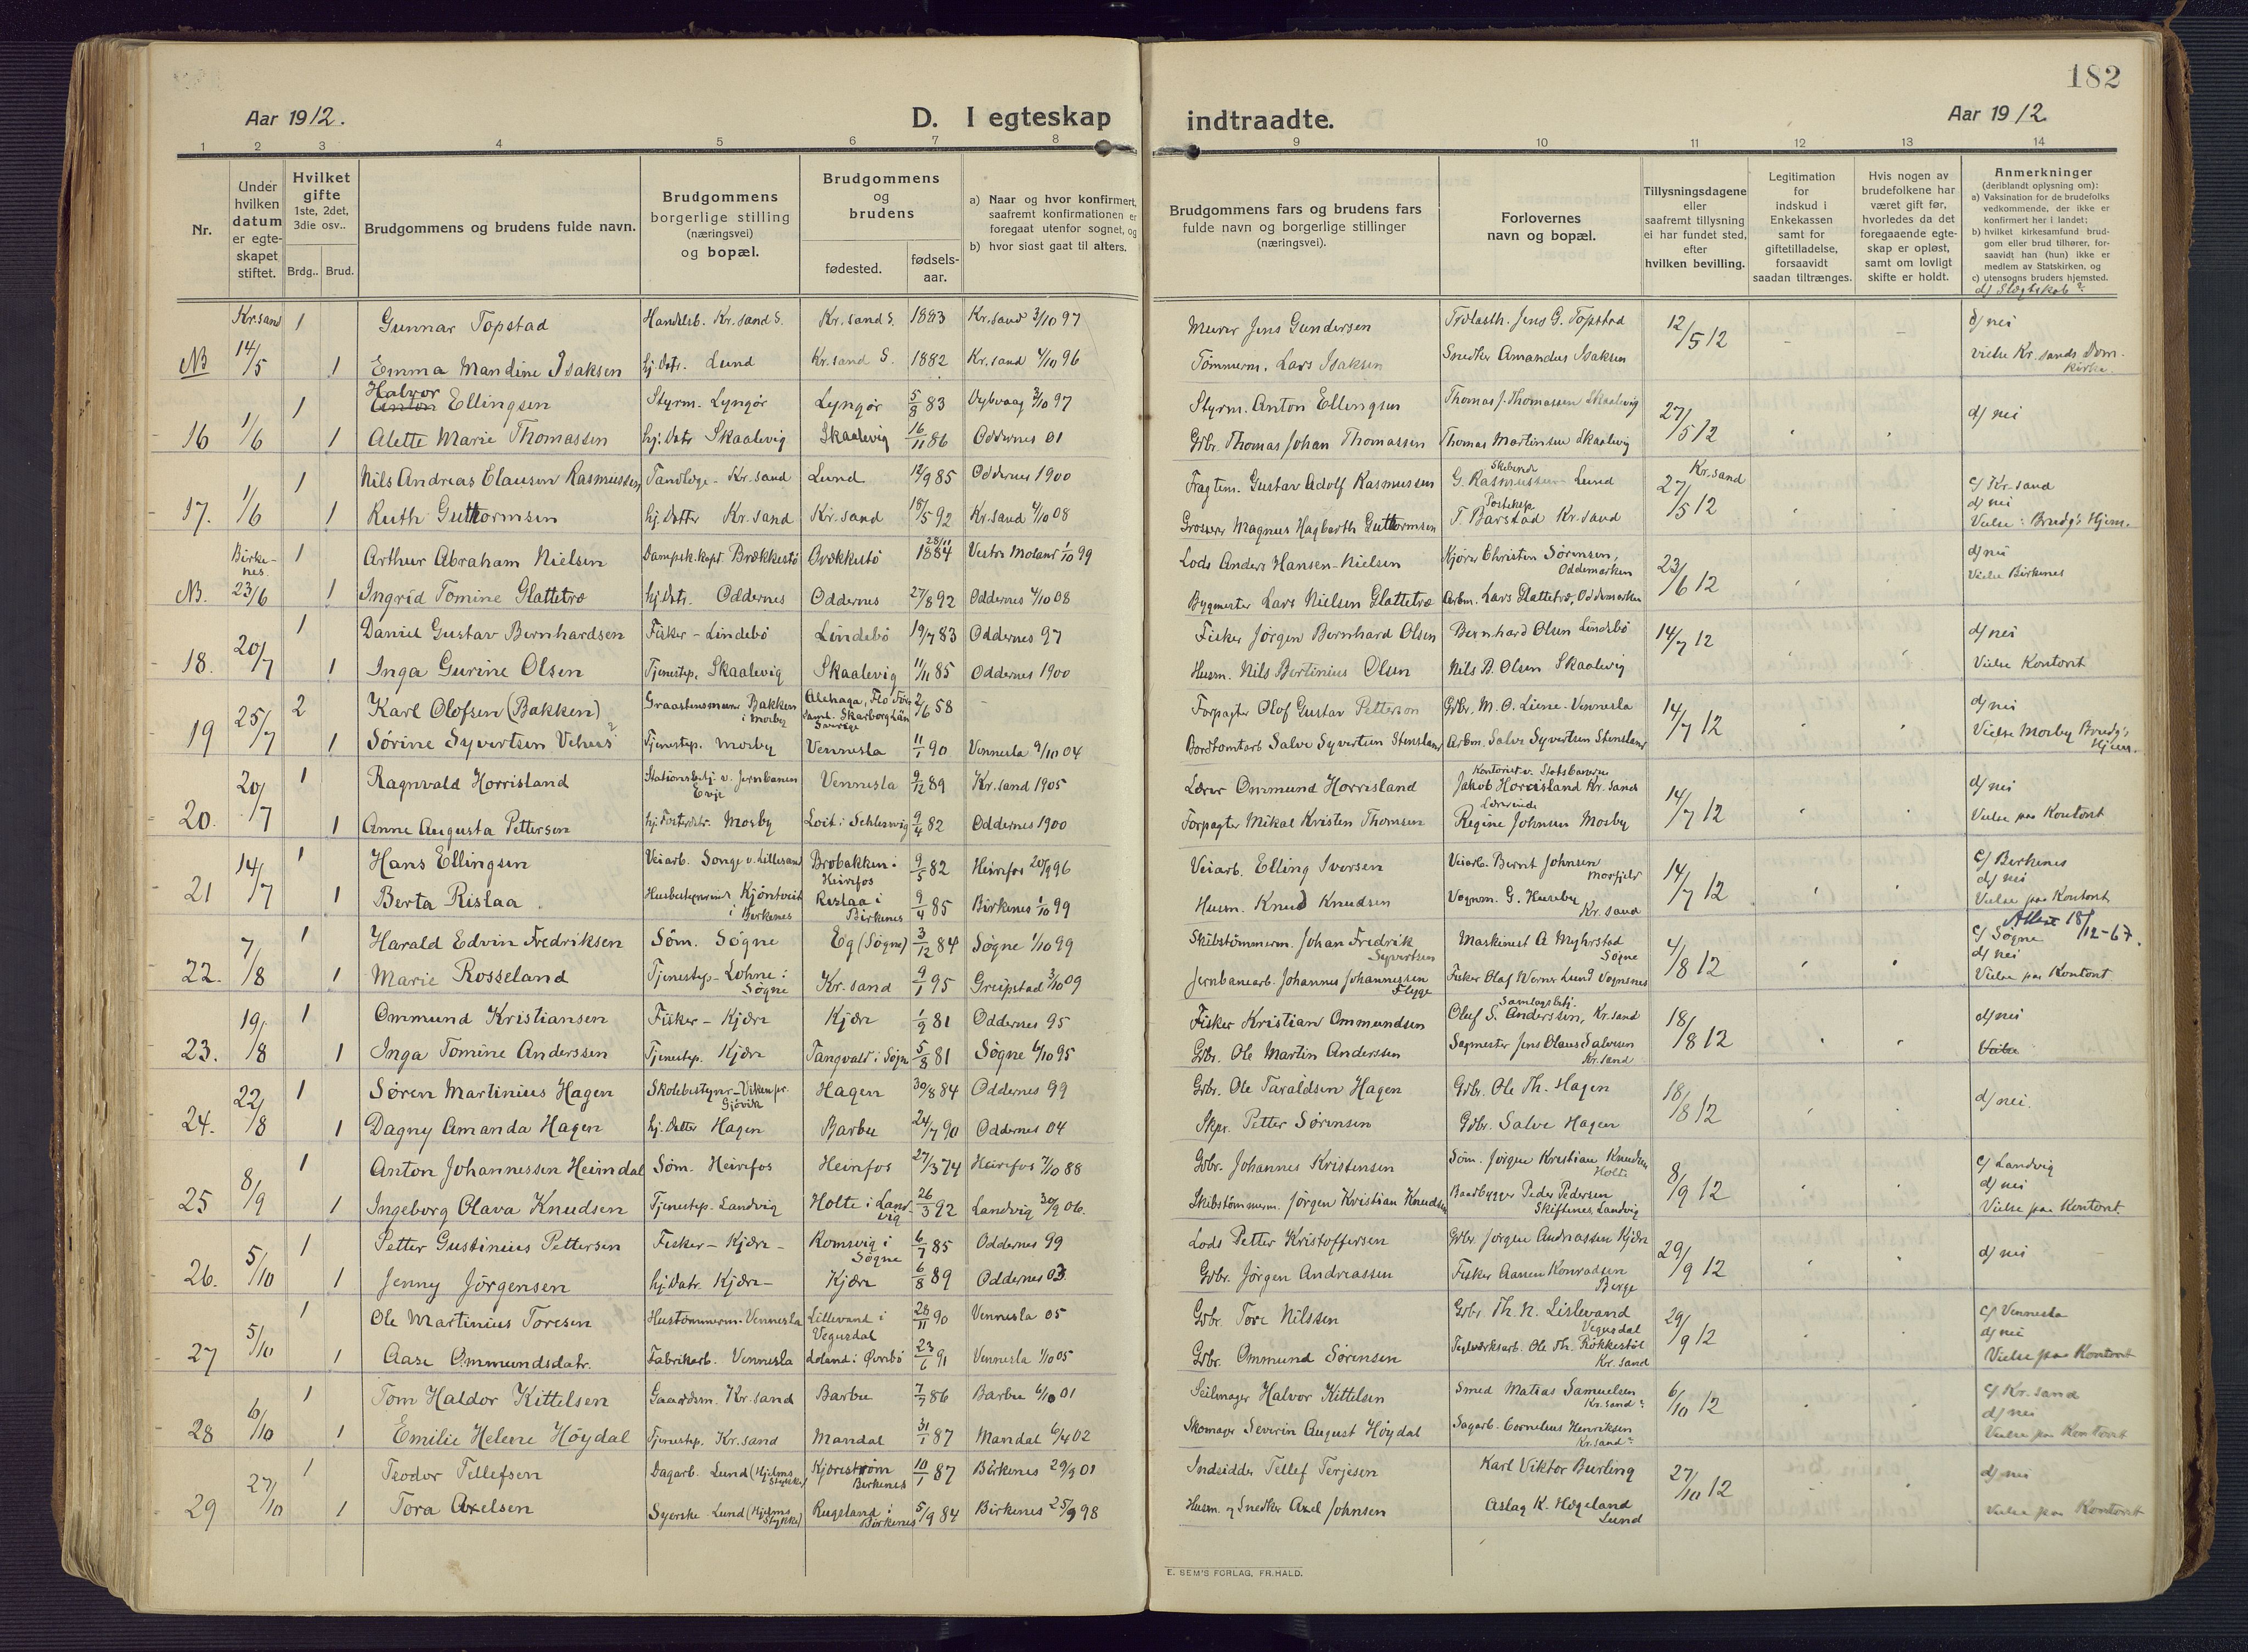 182
Aar 1912.
D. I egteskap indtraadte.
Aar 1912.
1 2 3 4 5 6 7 8 9 10 11 12 13 14
Nr.
Under hvilken datum er egteskapet stiftet.
Hvilket gifte 1ste, 2det, 3die osv..
Brdg.. Brud.
Brudgommens og brudens fulde navn.
Brudgommens borgerlige stilling (næringsvei) og bopæl.
Brudgommens og brudens
fødested. fødsels-aar.
a) Naar og hvor konfirmert, saafremt konfirmationen er foregaat utenfor sognet, og
b) hvor sidst gaat til alters.
Brudgommens fars og brudens fars fulde navn og borgerlige stillinger (næringsvei).
Forlovernes navn og bopæl.
Tillysningsdagene eller saafremt tillysning ei har fundet sted, efter hvilken bevilling.
Legitimation for indskud i Enkekassen samt for giftetilladelse, forsaavidt saadan tiltrænges.
Hvis nogen av brudefolkene har været gift før, hvorledes da det foregaaende egteskap er opløst, samt om lovligt skifte er holdt.
Anmerkninger (deriblandt oplysning om):
a) Vaksination for de brudefolks vedkommende, der ikke er konfirmert her i landet;
b) hvilket kirkesamfund brudgom eller brud tilhører, forsaavidt han (hun) ikke er medlem av Statskirken, og
c) utensogns bruders hjemsted.
d) Slegtskab?
Kr.sand 1 Gunnar Topstad Handelsb. Kr.sand S. Kr.sand S. 1883 Kr.sand 3/10 97 Murer Jens Gundersen Trælasth. Jens G. Topstad 12/5 12 d/ nei
NB 14/5 1 Emma Mandine Isaksen hj.datr. Lund Kr.sand S. 1882 Kr.sand 4/10 96 Tømmerm. Lars Isaksen Snedker Amandus Isaksen vielse Kr.sands Domkirke.
1 Halvor Anton Ellingsen Styrm. Lyngør Lyngør 5/8 83 Dybvaag 3/10 97 Styrm. Anton Ellingsen Thomas J. Thomassen Skaalevig 27/5 12 d/ nei
16 1/6 1 Alette Marie Thomassen hj.datr Skaalevig Skaalevig 16/11 86 Oddernes 01 Gbr. Thomas Johan Thomassen Thomas Martinsen Skaalevig
1 Nils Andreas Clausen Rasmussen Tandlæge - Kr.sand Lund 12/9 85 Oddernes 1900 Fragtem. Gustav Adolf Rasmussen G. Rasmussen Lund 27/5 12 Kr.sand c/ Kr.sand
17. 1/6 1 Ruth Guttormsen hj.datter Kr.sand Kr.sand 18/5 92 Kr.sand 4/10 08 Grosserer Magnus Hagbarth Guttormsen T. Barstad Kr.sand d/ nei Vielse: Brudg's Hjem.
Birkenes 1 Arthur Abraham Nielsen Dampsk.kapt. Brækkestø Brækkestø 28/11 1884 Vestre Moland 1/10 99 Lods Anders Hansen-Nielsen Kjører Christen Sørensen, Oddemarken 23/6 12 d/ nei
NB. 23/6 1 Ingrid Tomine Glattetræ hj.datr. Oddernes Oddernes 27/8 92 Oddernes 4/10 08 Bygmester Lars Nielsen Glattetræ Arbm. Lars Glattetræ, Oddemarken Vielse Birkenes
1 Daniel Gustav Bernhardsen Fisker - Lindebø Lindebø 19/7 83 Oddernes 97 Fisker Jørgen Bernhard Olsen Bernhard Olsen Lindebø 14/7 12 d/ nei
18. 20/7 1 Inga Gurine Olsen Tjenestep. Skaalevig Skaalevig 11/11 85 Oddernes 1900 Husm. Nils Bertinius Olsen Nils B. Olsen Skaalevig Vielse Kontoret
2 Karl Olofsen (Bakken) Graastensmurer Bakken i Mosby Alehaga, Flo Skarborg Län Sverige 2/6 58 - Forpagter Olof Gustav Petterson Gbr. M. O. Liene - Vennesla 14/7 12 d/ nei
19 25/7 1 Sørine Syvertsen Vehus? Tjenestep. Mosby Vennesla 11/1 90 Vennesla 9/10 04 Bordtomtarb Salve Syvertsen Stensland Arbm. Salve Syvertsen Stensland Vielse Mosby Brudg's Hjem.
1 Ragnvald Horrisland Stationsbetj. v. Jernbanen Evje Vennesla 9/12 89 Kr.sand 1905 Lærer Ommund Horrisland Kontorist v. Statsbanerne Jakob Horrisland Kr.sand 14/7 12 d/ nei
20. 20/7 1 Anne Augusta Pettersen hj.fosterdtr. Mosby Loit i Schleswig 9/4 82 Oddernes 1900 Forpagter Mikal Kristen Thomsen Lærerinde Regine Johnsen Mosby Vielse paa Kontoret
1 Hans Ellingsen Veiarb. Songe v. Lillesand Brobakken i Heirefos 9/5 82 Heirefos 20/9 96 Veiarb. Elling Iversen Veiarb. Bernt Johnsen 14/7 12 c/ Birkenes
21 14/7 1 Berta Rislaa Husbestyrerinde Kjøntveit i Birkenes Rislaa i Birkenes 9/4 85 Birkenes 1/10 99 Husm. Knud Knudsen Vognm. G. Huseby Kr.sand d/ nei Vielse paa Kontoret
Attest 18/12-67.
1 Harald Edvin Fredriksen Søm. Søgne Eg (Søgne) 3/12 84 Søgne 1/10 99 Skibstømmerm. Johan Fredrik Syvertsen Maskinist A Myhrstad Søgne 4/8 12 c/ Søgne
22. 7/8 1 Marie Rosseland Tjenestep - Lohne i Søgne Kr.sand 9/1 95 Greipstad 3/10 09 Jernbanearb. Johannes Johannessen Flegge Fisker Olaf Werner Lund Vognsnes d/ nei Vielse paa Kontoret
1 Ommund Kristiansen Fisker - Kjære Kjære 1/9 81 Oddernes 95 Fisker Kristian Ommundsen Samlagsbetj. Oluf S. Anderssen, Kr.sand 18/8 12 d/ nei
23. 19/8 1 Inga Tomine Anderssen Tjenestep. Kjære Tangvald i Søgne 5/8 81 Søgne 6/10 95 Gbr. Ole Martin Anderssen Sagmester Jens Olaus Salvesen Kr.sand Vielse
1 Søren Martinius Hagen Skolebestyrer - Viken pr. Gjøvik Hagen 30/8 84 Oddernes 99 Gbr. Ole Taraldsen Hagen Gbr. Ole Th. Hagen 18/8 12 d/ nei.
24. 22/8 1 Dagny Amanda Hagen hj.datter Hagen Barbu 24/7 90 Oddernes 04 Skpr. Petter Sørensen Gbr. Salve Hagen
1 Anton Johannessen Heimdal Søm. Heirefos Heirefos 27/3 74 Heirefos 7/10 88 Gbr. Johannes Kristensen Søm. Jørgen Kristian Knudsen Holte 8/9 12 c/ Landvig
25 8/9 1 Ingeborg Olava Knudsen Tjenestep. Landvig Holte i Landvig 26/3 92 Landvig 30/9 06. Skibstømmerm. Jørgen Kristian Knudsen Baadbygger Peder Pedersen Skiftenes, Landvig d/ nei Vielse paa Kontoret.
1 Petter Gustinius Pettersen Fisker - Kjære - Romsvig i Søgne 6/7 85 Oddernes 99 Lods Petter Kristoffersen Gbr Jørgen Andreassen Kjære 29/9 12 d/ nei
26. 5/10 1 Jenny Jørgensen hj.datr. Kjære - Kjære 6/8 89 Oddernes 03 Gbr. Jørgen Andreassen Fisker Aanen Konradsen Berge
1 Ole Martinius Toresen Hustømmerm. Vennesla Lillevand i Vegusdal 28/11 90 Vennesla 05 Gbr. Tore Nilssen Gbr. Th. N. Lislevand Vegusdal 29/9 12 c/ Vennesla
27 5/10 1 Aase Ommundsdatr. Fabrikarb. Vennesla Loland i Øvrebø 23/6 91 Vennesla 1/10 05 Gbr. Ommund Sørensen Teglværksarb. Ole Th. Røkkestøl Kr.sand d/ nei Vielse paa Kontoret
1 Tom Haldor Kittelsen Gaardsm. Kr.sand Barbu 7/7 86 Barbu 6/10 01 Seilmager Halvor Kittelsen Smed Matias Samuelsen Kr.sand 6/10 12 c/ Kr.sand
28 6/10 1 Emilie Helene Høydal Tjenestep. Kr.sand Mandal 31/1 87 Mandal 6/4 02 Skomager Severin August Høydal Sagarb. Cornelius Henriksen Kr.sand d/ nei Vielse paa Kontoret
1 Teodor Tellefsen Dagarb. Lund (Hjelms Stykke) Kjærestrøm Birkenes 10/1 87 Birkenes 29/9 01 Indsidder Tellef Terjesen Karl Viktor Burling 27/10 12 d/ nei
29 27/10 1 Tora Axelsen Syerske Lund (Hjelms Stykke) Rugsland i Birkenes 5/9 84 Birkenes 25/9 98 Husm. og Snedker Axel Johnsen Aslag K. Hægeland Lund Vielse paa Kontoret
E. SEM'S FORLAG, FR.HALD.